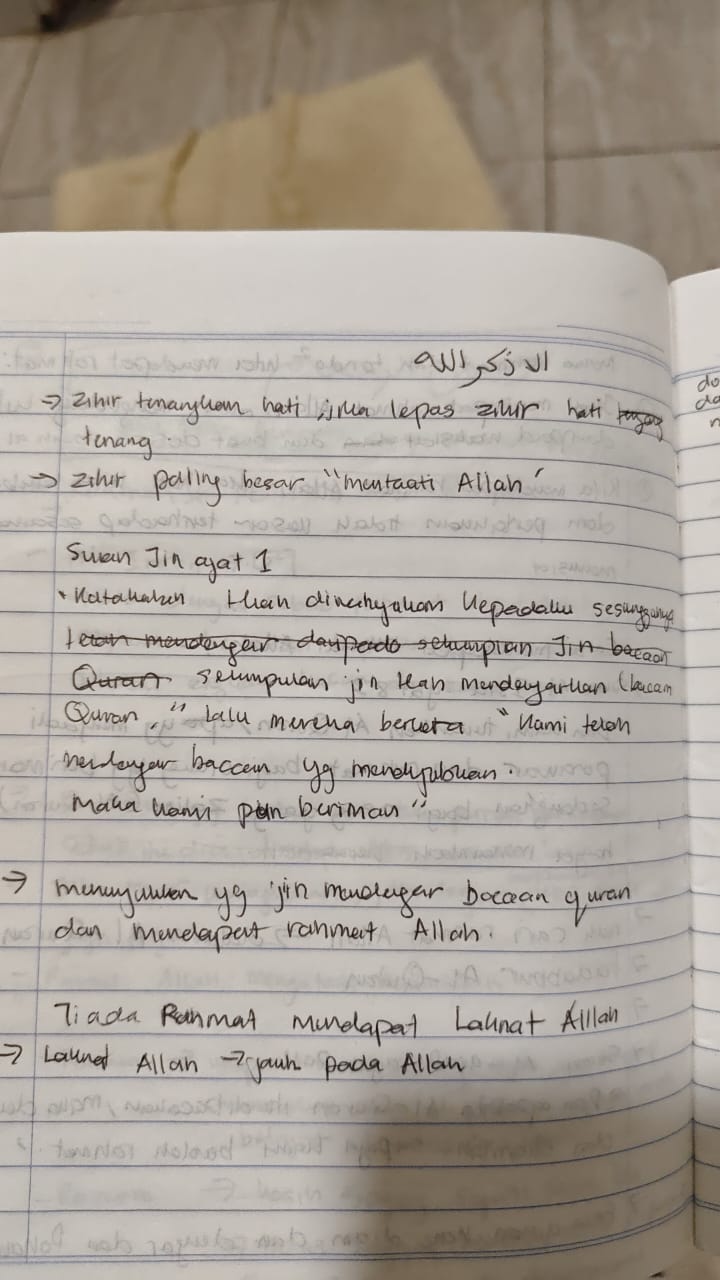 الا ذكر الله
→ Zikir tenangkan hati jika lepas zikir hati
tenang
→ Zikir paling besar "mentaati Allah"
Surah Jin ayat 1
• Katakahan tkah diwahyukan kepadaku sesungguhnya
telah mendengar daripada sekumpulan Jin bacaan
Quran sekumpulan jin tkah mendengarkan (bacaan
Quran," lalu mereka berkata "Kami telah
mendengar bacaan yg menakjubkan.
Maka kami pun beriman"
→ menunjukkan yg jin mendengar bacaan quran
dan mendapat rahmat Allah.
Tiada Rahmat mendapat Laknat Alllah
→ Laknat Allah → jauh pada Allah
do
da